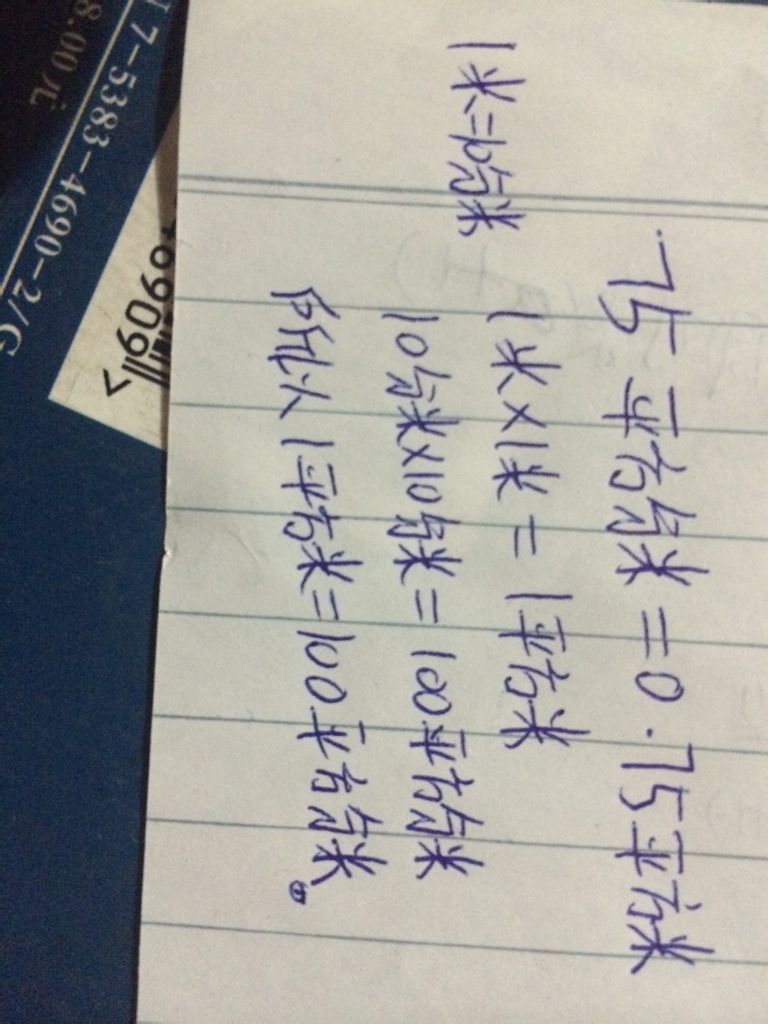 1米=10分米
75平方分米=0.75平方米
1米×1米=1平方米
10分米×10分米=100平方分米
所以1平方米=100平方分米。
7-5383-4690-2/G
8.00元